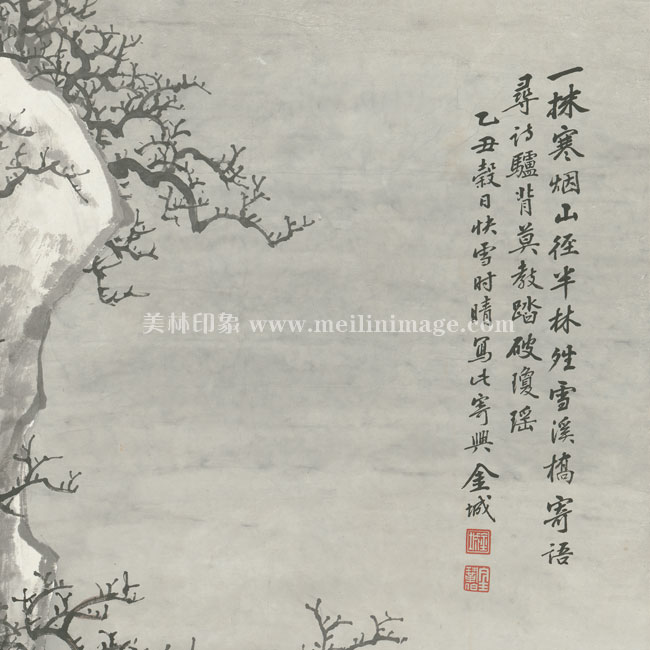 一抹寒烟山径半林残雪溪桥寄语
尋诗驢背莫教踏破瓊瑶
乙丑穀日快雪时晴寫此寄興金城
美林印象 www.meilinimage.com